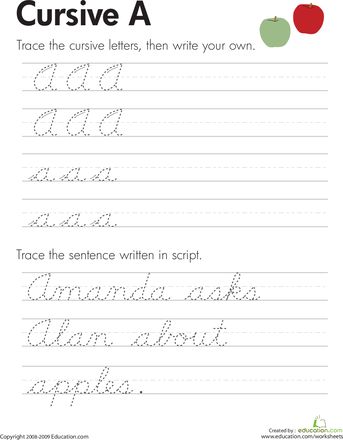 Cursive A
Trace the cursive letters, then write your own.
A A A
A A A
a a a
a a a
Trace the sentence written in script.
Amanda asks
Alan about
apples.
Created by : education.com
Copyright 2008-2009 Education.com
www.education.com/worksheets